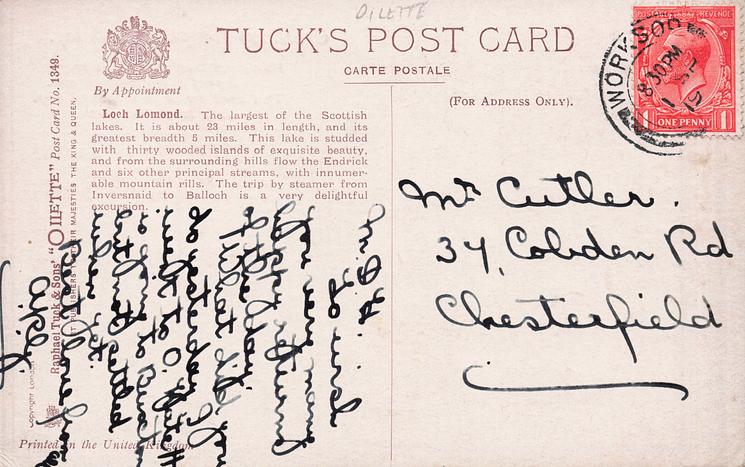 OILETTE
TUCK'S POST CARD
CARTE POSTALE
By Appointment
(FOR ADDRESS ONLY).
Loch Lomond. The largest of the Scottish
lakes. It is about 23 miles in length, and its
greatest breadth 5 miles. This lake is studded
with thirty wooded islands of exquisite beauty,
and from the surrounding hills flow the Endrick
and six other principal streams, with innumer-
able mountain rills. The trip by steamer from
Inversnaid to Balloch is a very delightful
excursion.
Raphael Tuck & Sons' "OILETTE" Post Card No. 1349.
PUBLISHERS THEIR MAJESTIES THE KING & QUEEN.
Copyright London
Printed in the United Kingdom
WORKSOP
8 30 PM
POSTAGE REVENUE
1 ONE PENNY 1
Mr Cutler.
34, Cobden Rd
Chesterfield
My D. H.
So
you were
after
What did you
do yesterday
with the O.
is
not settled
when yet.
Best love from